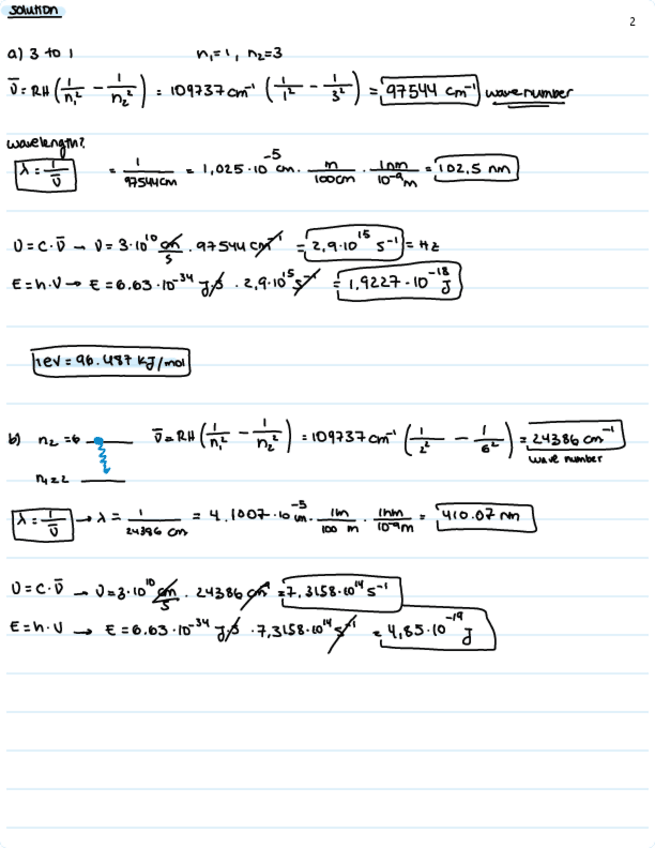 Solution
2
a) 3 to 1 n₁=1, n₂=3
ῡ = RH (1/n₁² − 1/n₂²) = 109737 cm⁻¹ (1/1² − 1/3²) = 97544 cm⁻¹ wave number
wavelength?
λ = 1/ῡ = 1/97544cm = 1,025·10⁻⁵ cm · m/100cm · 1nm/10⁻⁹m = 102,5 nm
υ = c·ῡ → υ = 3·10¹⁰ cm/s · 97544 cm⁻¹ = 2,9·10¹⁵ s⁻¹ = Hz
E = h·υ → E = 6.63·10⁻³⁴ J·s · 2,9·10¹⁵ s⁻¹ = 1,9227·10⁻¹⁸ J
1eV = 96.487 KJ/mol
b) n₂ = 6 ῡ = RH (1/n₁² − 1/n₂²) = 109737 cm⁻¹ (1/2² − 1/6²) = 24386 cm⁻¹
wave number
n₁ = 2
λ = 1/ῡ → λ = 1/24386 cm = 4,1007·10⁻⁵ cm · 1m/100 m · 1nm/10⁻⁹m = 410.07 nm
υ = c·ῡ → υ = 3·10¹⁰ cm/s · 24386 cm⁻¹ = 7,3158·10¹⁴ s⁻¹
E = h·υ → E = 6.63·10⁻³⁴ J·s · 7,3158·10¹⁴ s⁻¹ = 4,85·10⁻¹⁹ J